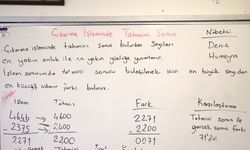 Çıkarma İşleminde Tahmini Sonuç
Nöbetçi
Deniz
Hümeyra
Çıkarma işleminde tahmini sonuç bulurken sayıları
en yakın onluk ile en yakın yüzlüğe yuvarlarız.
İşlem sonucunda tahmini sonucu bulabilmek için en büyük sayıdan
en küçük sayı farkı bulunur.
İşlem Tahmin Fark Karşılaştırma
4646 → 4600 2271 Tahmini sonuç ile
2375 → 2400 2200 gerçek sonuç farkı
2271 2200 0071 71'dir.